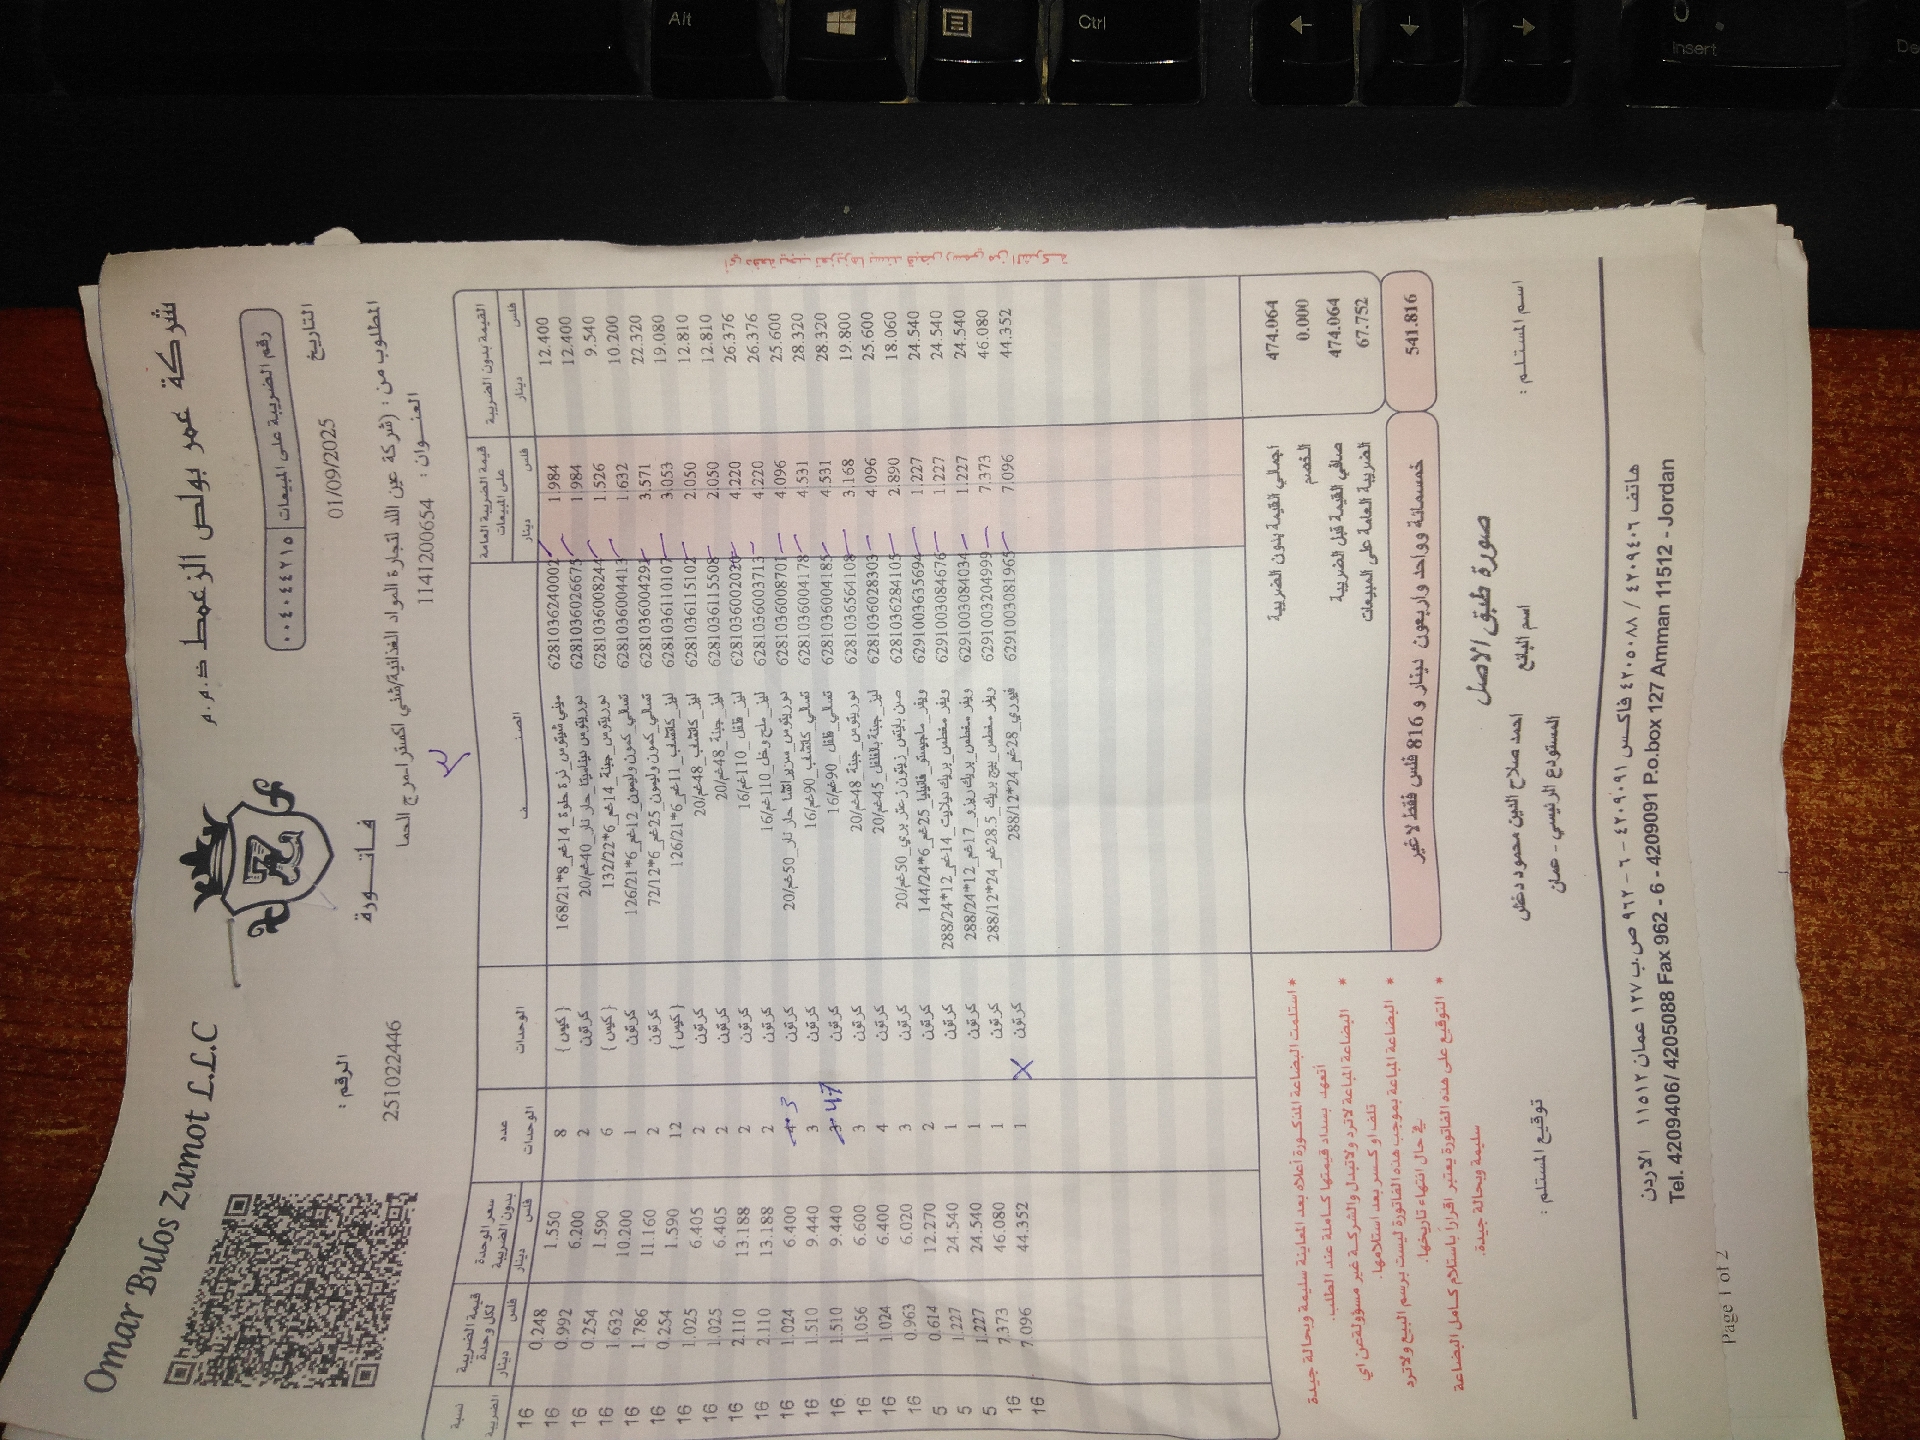 Omar Bulos Zumot L.L.C
شركة عمر بولص الزعمط ذ.م.م
رقم الضريبة على المبيعات ٠٠٤٠٤٤٢١٥
فاتورة
التاريخ 01/09/2025
الرقم : 251022446
المطلوب من : (شركة عين اللد لتجارة المواد الغذائية/شلبي اكسترا مرج الحما
العنوان : 1141200654
نسبة الضريبة | قيمة الضريبة لكل وحدة دينار فلس | سعر الوحدة بدون الضريبة دينار فلس | عدد الوحدات | الوحدات | الصنف | قيمة الضريبة العامة على المبيعات دينار فلس | القيمة بدون الضريبة دينار فلس
16 0.248 1.550 8 { كيس } ميني شيتوس ذرة حلوة_14غم_8*168/21 6281036240002 1.984 12.400
16 0.992 6.200 2 كرتون دوريتوس ديناميتا حار نار_40غم/20 6281036026675 1.984 12.400
16 0.254 1.590 6 { كيس } دوريتوس_جبنة_14غم_6*132/22 6281036008244 1.526 9.540
16 1.632 10.200 1 كرتون تسالي_كمون وليمون_12غم_6*126/21 6281036004413 1.632 10.200
16 1.786 11.160 2 كرتون تسالي_كمون وليمون_25غم_6*72/12 6281036004291 3.571 22.320
16 0.254 1.590 12 { كيس } ليز_كاتشاب_11غم_6*126/21 6281036110107 3.053 19.080
16 1.025 6.405 2 كرتون ليز_كاتشاب_48غم/20 6281036115102 2.050 12.810
16 1.025 6.405 2 كرتون ليز_جبنة_48غم/20 6281036115508 2.050 12.810
16 2.110 13.188 2 كرتون ليز_فلفل_110غم/16 6281036002020 4.220 26.376
16 2.110 13.188 2 كرتون ليز_ملح وخل_110غم/16 6281036003713 4.220 26.376
16 1.024 6.400 3 كرتون دوريتوس_سريراتشا حار نار_50غم/20 6281036008701 4.096 25.600
16 1.510 9.440 3 كرتون تسالي_كاتشاب_90غم/16 6281036004178 4.531 28.320
16 1.510 9.440 كرتون تسالي_فلفل_90غم/16 6281036004185 4.531 28.320
16 1.056 6.600 3 كرتون دوريتوس_جبنة_48غم/20 6281036564108 3.168 19.800
16 1.024 6.400 4 كرتون ليز_جبنة بالفلفل_45غم/20 6281036028303 4.096 25.600
16 0.963 6.020 3 كرتون صن بايتس_زيتون زعتر بري_50غم/20 6281036284105 2.890 18.060
5 0.614 12.270 2 كرتون ويفر_ماجيستو_فانيليا_25غم_6*144/24 6291003635694 1.227 24.540
5 1.227 24.540 1 كرتون ويفر_مغطس_بريك ديلايت_14غم_12*288/24 6291003084676 1.227 24.540
5 1.227 24.540 1 كرتون ويفر_مغطس_بريك ريزو_17غم_12*288/24 6291003084034 1.227 24.540
16 7.373 46.080 1 كرتون ويفر_مغطس_بيج بريك_28.5غم_24*288/12 6291003204999 7.373 46.080
16 7.096 44.352 1 كرتون فيوري_28غم_24*288/12 6291003081965 7.096 44.352
X
اجمالي القيمة بدون الضريبة 474.064
الخصم 0.000
صافي القيمة قبل الضريبة 474.064
الضريبة العامة على المبيعات 67.752
خمسمائة وواحد واربعون دينار و 816 فلس فقط لا غير 541.816
* استلمت البضاعة المذكورة أعلاه بعد المعاينة سليمة وبحالة جيدة
أتعهد بسداد قيمتها كاملة عند الطلب.
* البضاعة المباعة لا ترد ولا تبدل والشركة غير مسؤولة عن اي
تلف او كسر بعد استلامها.
* البضاعة المباعة بموجب هذه الفاتورة ليست برسم البيع ولا ترد
في حال انتهاء تاريخها.
* التوقيع على هذه الفاتورة يعتبر اقراراً باستلام كامل البضاعة
سليمة وبحالة جيدة.
صورة طبق الاصل
اسم المستلم :
اسم البائع احمد صلاح الدين محمود دغش
المستودع الرئيسي - عمان
توقيع المستلم :
هاتف ٤٢٠٩٤٠٦ / ٤٢٠٥٠٨٨ فاكس ٤٢٠٩٠٩١ - ٦ - ٩٦٢ ص.ب ١٢٧ عمان ١١٥١٢ الاردن
Tel. 4209406/ 4205088 Fax 962 - 6 - 4209091 P.o.box 127 Amman 11512 - Jordan
Page 1 of 2